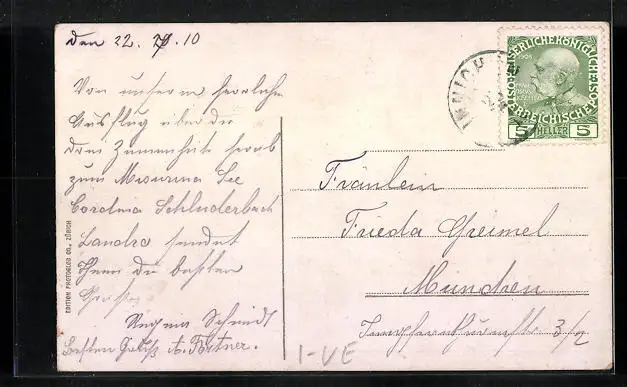 den 22. 7. 10
Von unserm herrlichen
Ausflug über die
drei Zinnenhütte herab
zum Misurina See
Schluderbach
Landro sendet
Ihnen die besten
Grüße
Regina Schmidt
Besten Gruß A.
EDITION PHOTOGLOB CO., ZÜRICH
INNICH
KAISERLICHE KÖNIGLICHE
ÖSTERREICHISCHE POST
1908
5 HELLER 5
Fräulein
Frieda Greimel
München
3/2
I-VE